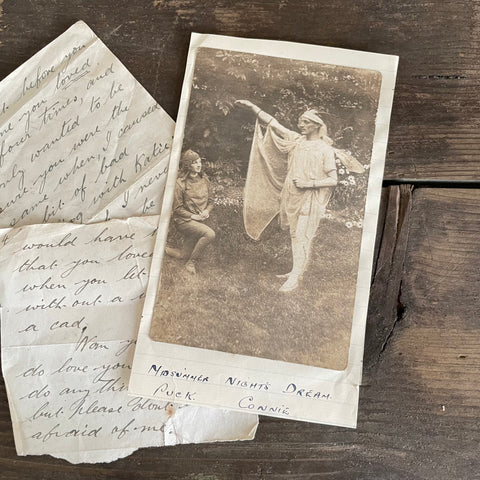 before you
me you loved.
four times, and
only wanted to be
sure you were the
same when I caused
bit of bad
with Katie
I never
be
would have
that you love
when you let
without a
a cad.
Now y
do love you
do anything
but please don't
afraid of me.
MIDSUMMER NIGHT'S DREAM.
PUCK CONNIE